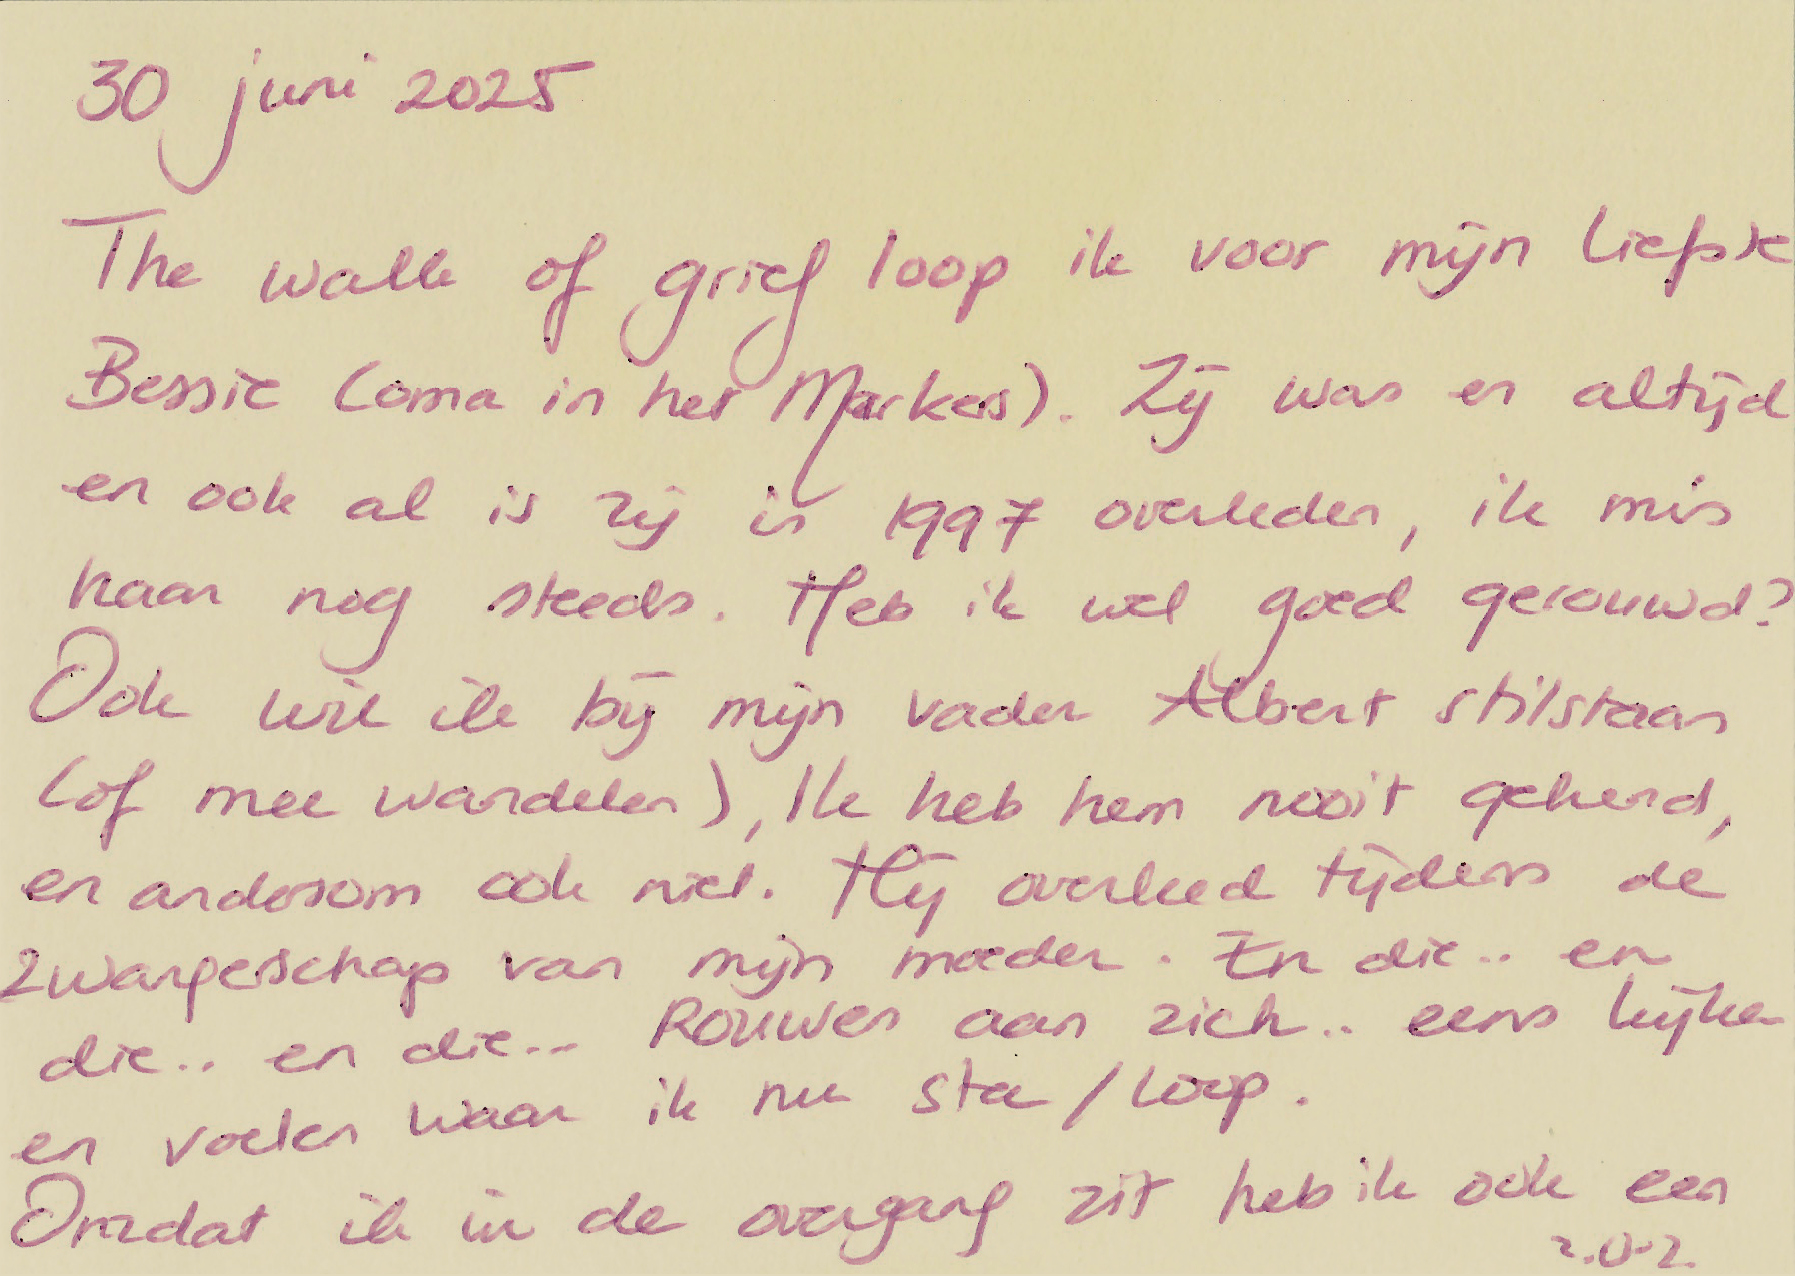 30 juni 2025
The walk of grief loop ik voor mijn liefste
Bessie (oma in het Markers). Zij was er altijd
en ook al is zij in 1997 overleden, ik mis
haar nog steeds. Heb ik wel goed gerouwd?
Ook wil ik bij mijn vader Albert stilstaan
(of mee wandelen), Ik heb hem nooit gekend,
en andersom ook niet. Hij overleed tijdens de
zwangerschap van mijn moeder. En die.. en
die.. en die... Rouwen aan zich.. eens kijken
en voelen waar ik nu sta / loop.
Omdat ik in de overgang zit heb ik ook een
z.o.z.